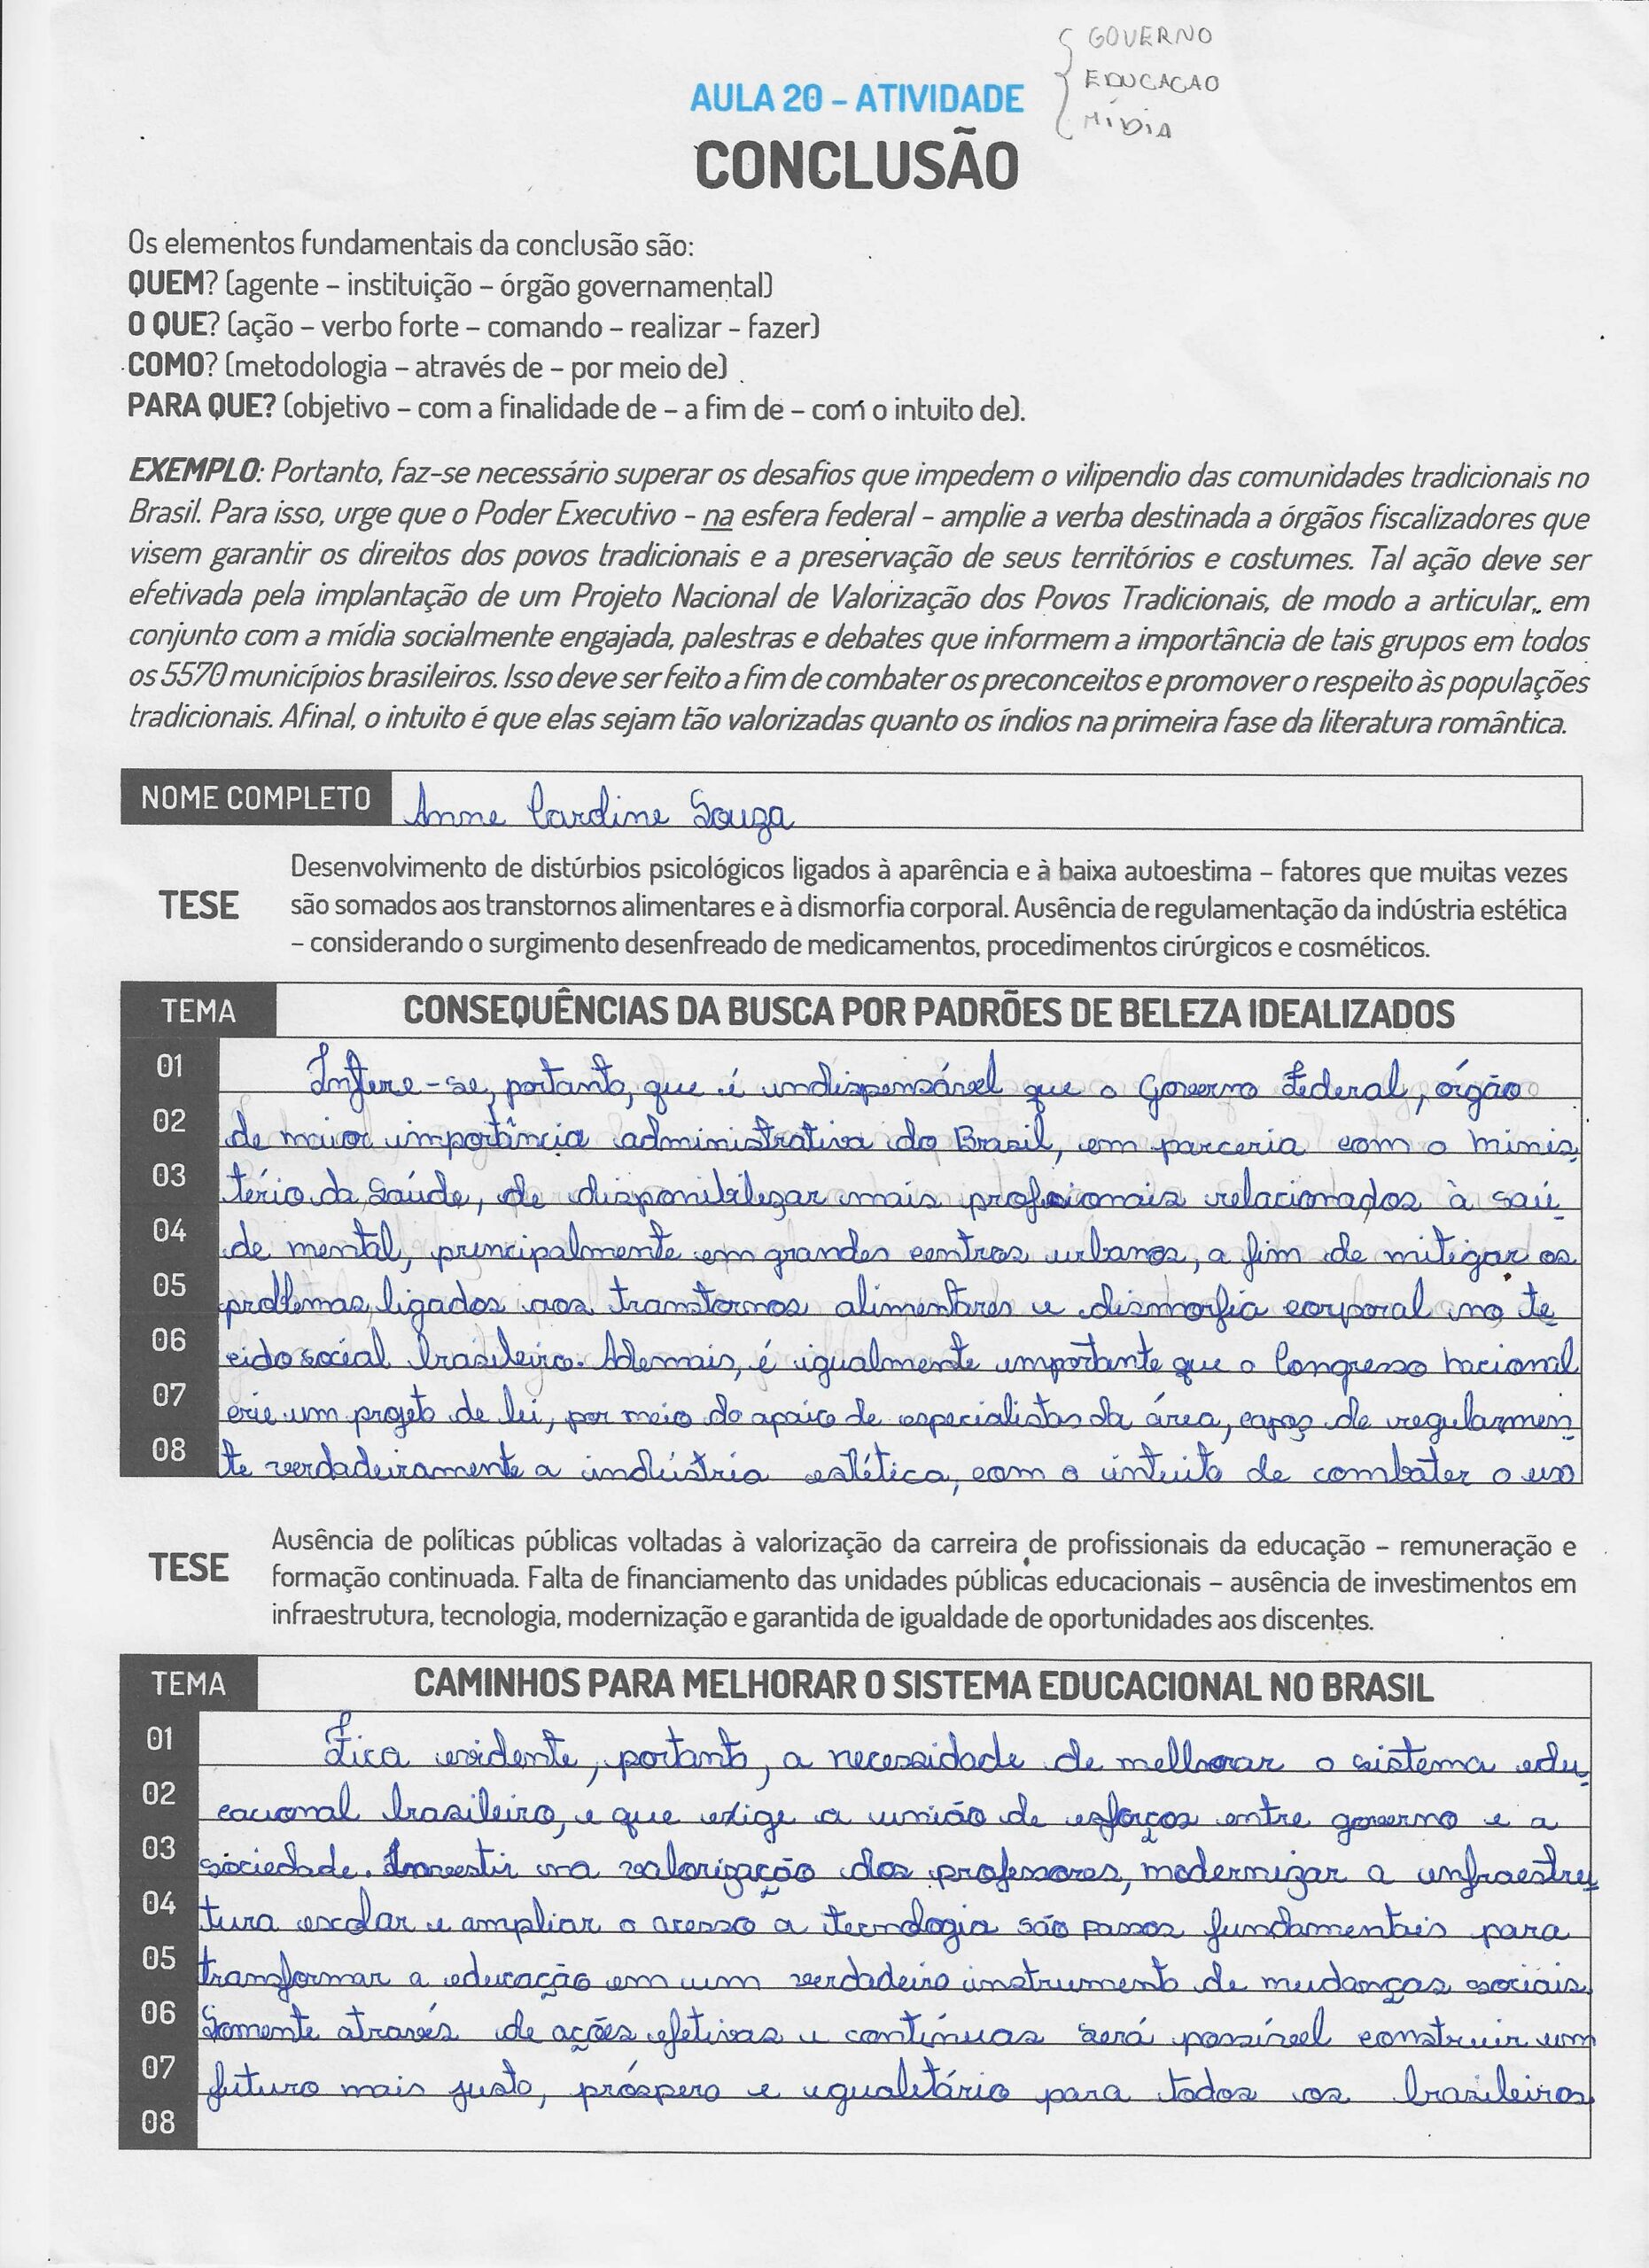 GOVERNO
EDUCACAO
MÍDIA
AULA 20 – ATIVIDADE
CONCLUSÃO
Os elementos fundamentais da conclusão são:
QUEM? (agente – instituição – órgão governamental)
O QUE? (ação – verbo forte – comando – realizar – fazer)
COMO? (metodologia – através de – por meio de)
PARA QUE? (objetivo – com a finalidade de – a fim de – com o intuito de).
EXEMPLO: Portanto, faz-se necessário superar os desafios que impedem o vilipendio das comunidades tradicionais no
Brasil. Para isso, urge que o Poder Executivo – na esfera federal – amplie a verba destinada a órgãos fiscalizadores que
visem garantir os direitos dos povos tradicionais e a preservação de seus territórios e costumes. Tal ação deve ser
efetivada pela implantação de um Projeto Nacional de Valorização dos Povos Tradicionais, de modo a articular, em
conjunto com a mídia socialmente engajada, palestras e debates que informem a importância de tais grupos em todos
os 5570 municípios brasileiros. Isso deve ser feito a fim de combater os preconceitos e promover o respeito às populações
tradicionais. Afinal, o intuito é que elas sejam tão valorizadas quanto os índios na primeira fase da literatura romântica.
NOME COMPLETO Anne Caroline Souza
TESE
Desenvolvimento de distúrbios psicológicos ligados à aparência e à baixa autoestima – fatores que muitas vezes
são somados aos transtornos alimentares e à dismorfia corporal. Ausência de regulamentação da indústria estética
– considerando o surgimento desenfreado de medicamentos, procedimentos cirúrgicos e cosméticos.
TEMA CONSEQUÊNCIAS DA BUSCA POR PADRÕES DE BELEZA IDEALIZADOS
01 Infere-se, portanto, que é indispensável que o Governo Federal, órgão
02 de maior importância administrativa do Brasil, em parceria com o minis
03 tério da Saúde, de disponibilizar mais profisionais relacionados à saú
04 de mental, principalmente em grandes centros urbanos, a fim de mitigar os
05 problemas ligados aos transtornos alimentares e dismorfia corporal no te
06 cido social brasileiro. Ademais, é igualmente importante que o Congresso nacional
07 crie um projeto de lei, por meio do apoio de especialistas da área, capaz de regulamen
08 te verdadeiramente a indústria estética, com o intuito de combater o uso
TESE
Ausência de políticas públicas voltadas à valorização da carreira de profissionais da educação – remuneração e
formação continuada. Falta de financiamento das unidades públicas educacionais – ausência de investimentos em
infraestrutura, tecnologia, modernização e garantida de igualdade de oportunidades aos discentes.
TEMA CAMINHOS PARA MELHORAR O SISTEMA EDUCACIONAL NO BRASIL
01 Fica evidente, portanto, a necessidade de melhorar o sistema edu
02 cacional brasileiro, e que exige a união de esforços entre governo e a
03 sociedade. Investir na valorização dos professores, modernizar a infraestru
04 tura escolar e ampliar o acesso a tecnologia são passos fundamentais para
05 transformar a educação em um verdadeiro instrumento de mudanças sociais.
06 Somente através de ações efetivas e contínuas será possível construir um
07 futuro mais justo, próspero e igualitário para todos os brasileiros
08